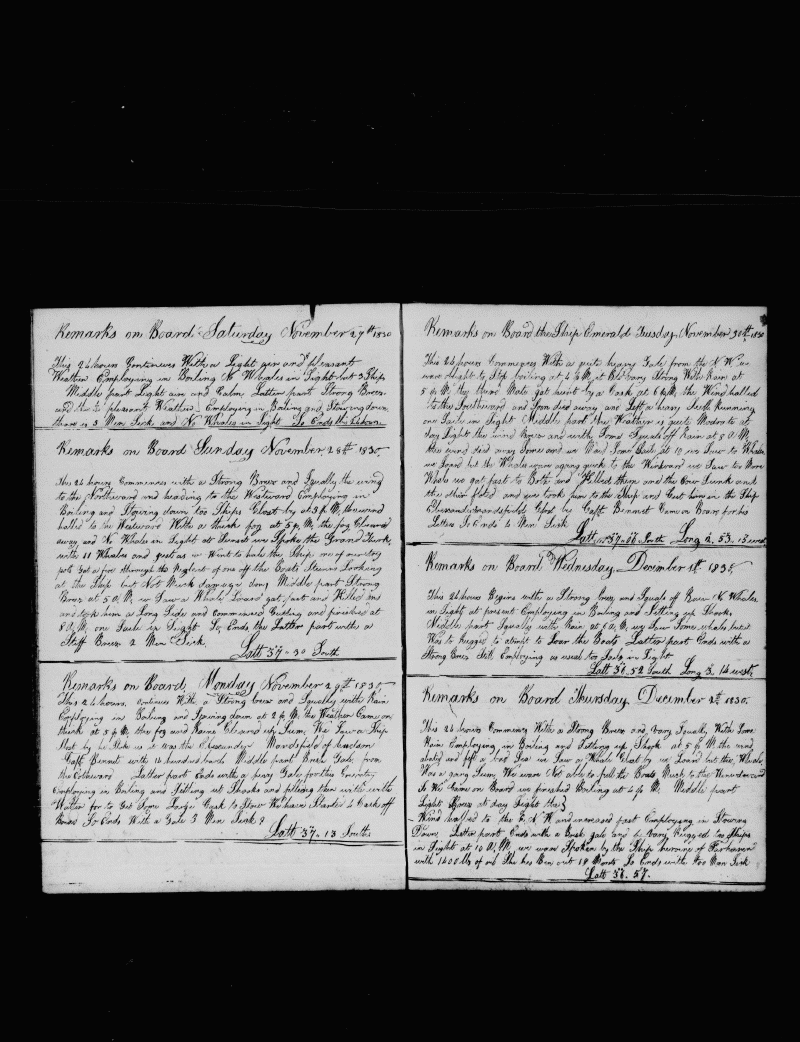 Remarks on Board Saturday November 27th 1830
This 24 hours Continues With a Light air and pleasant
Weather Employing in Boiling No Whales in Sight but 3 Ships
Middle part Light air and Calm Latter part Strong Breez
and the pleasant Weather Employing in Boiling and Stowing down
there is 3 Men Sick and No Whales in Sight So Ends this 24 hours
Remarks on Board Sunday November 28th 1830
This 24 hours Commences With a Strong Breez and Squally the wind
to the Northward and heading to the Westward Employing in
Boiling and Stowing down too Ships Close by at 3 P M the wind
halled to the Westward With a thick fog at 5 P M the fog Cleared
away and No Whales in Sight at Sunset we Spoke the Grand Turk
with 11 Whales and just as we Went to hale the Ship one of our try
pots Got a fire through the Neglect of one off the Boat Steerers Looking
at the Ship but Not Much damage don Middle part Strong
Breez at 5 A M we Saw a Whale Loward got fast and Killed him
and took him a Long Side and Commenced Cutting and finished at
8 A M one Sail in Sight So Ends the Latter part with a
Stiff Breez 2 Men Sick
Latt 37-30 South
Remarks on Board Monday November 29th 1830
This 24 hours Continues With a Strong breez and Squally with Rain
Employing in Boiling and Stowing down at 2 P M the Weather Came on
thick at 5 P M the fog and Raine Cleared up Sum We Saw a Ship
Close by he Stood us it was the Elexander Mansfield of hudson
Caft Bennet with 14 hundred barels Middle part Brisk Gale from
the Latter part Ends with a heavy Gale for this Country
Employing in Boiling and Sitting up Shooks and filling them with with
Watter for to Get Some Large Cask to Stow We have Started 2 Cask off
Bread So Ends With a Gale 3 Men Sick
Latt 37-13 South
Remarks on Board the Ship Emerald Tuesday November 30th 1830
This 24 hours Commences With a quite heavy Gale from the N W we
ware oblight to Stop boiling at 4 P M it Bled vary Strong With Rain at
5 P M the third Mate got hurt by a Cask at 6 P M the Wind halled
to the Southward and Soon died away and Left a heavy Seeth Running
one Sail in Sight Middle part the Weather is quite Moderate at
day Light the wind Breez and with Some Squals off Rain at 8 A M
the wind died away Some and we Maid Some Sail at 10 we Saw to Whales
we Loard but the Whales ware agoing quick to the Windward we Saw two More
Whale we got fast to Both and Killed them and the Cow Sunk and
the other floted and we took him to the Ship and Cut him in the Ship
Elexander Mansfield Close by Caft Bennet Came on Board for his
Letters So Ends to Men Sick
Latt 37-06 South Long 2.53.15 west
Remarks on Board Wednesday December 1st 1830
This 24 hours Begins with a Strong breez and Squals off Rain No Whales
in Sight at present Employing in Boiling and Setting up Shooks
Middle part Squally with Rain at 6 A M we Saw Some whales but it
Was to Rugged to attemt to Loar the Boats Latter part Ends with a
Strong Breez Still Employing as usual too Sails in Sight
Latt 36.52 South Long 3.14 west
Remarks on Board Thursday December 2d 1830
This 24 hours Commences With a Strong Breez and vary Squally With Some
Rain Employing in Boiling and Setting up Shook at 5 P M the wind
abated and Left a bad Sea we Saw a Whale Close by we Loard but the Whale
Was a going Sum We ware Not able to pull the Boats Much to the Windward
So We Came on Board we finished Boiling at 4 P M Middle part
Light Breez at day Light the
Wind halled to the E N W and increased fast Employing in Stowing
Down Latter part Ends with a Brisk gale and is Vary Rugged too Ships
in Sight at 10 A M we ware Spoken by the Ship herrine of Fairhaven
with 1400 bls of oil She has Ben out 19 Monts So Ends with too Men Sick
Latt 36.57